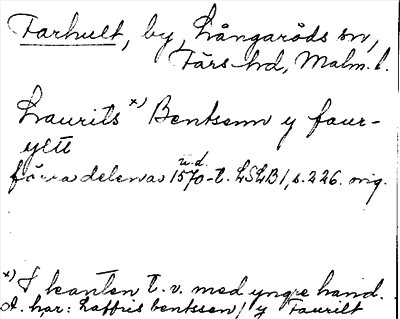 Farhult, by, Långaröds sn,
Färs hd, Malm. l.
Laurits x) Bentsenn y faur-
yltt
förra delen av 1570-t. LSLB1, s. 226. orig.
u.d.
x) I kanten t.v. med yngre hand.
st. har: Laffris bentssen / y Faurilt